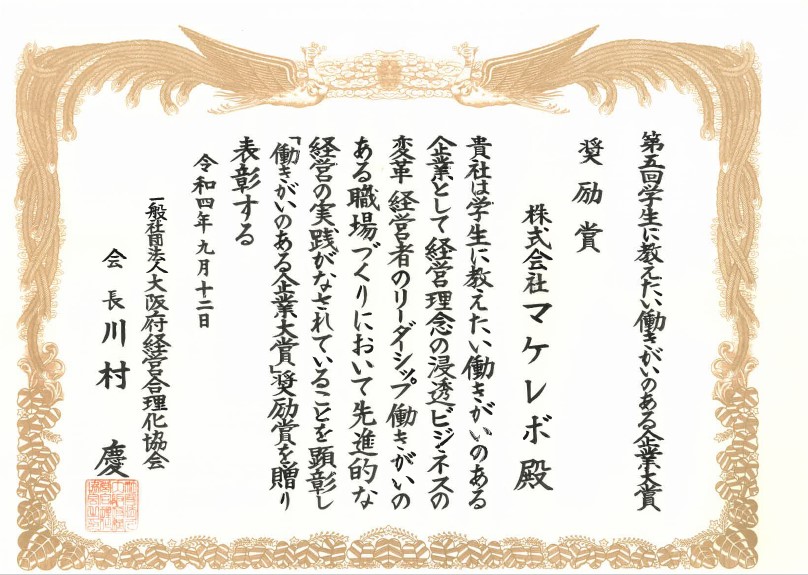 第五回学生に教えたい働きがいのある企業大賞
奨励賞
株式会社マケレボ殿
貴社は学生に教えたい働きがいのある
企業として経営理念の浸透ビジネスの
変革 経営者のリーダシップ 働きがいの
ある職場づくりにおいて先進的な
経営の実践がなされていることを顕彰し
「働きがいのある企業大賞」奨励賞を贈り
表彰する
令和四年九月十二日
一般社団法人大阪府経営合理化協会
会長 川村 慶